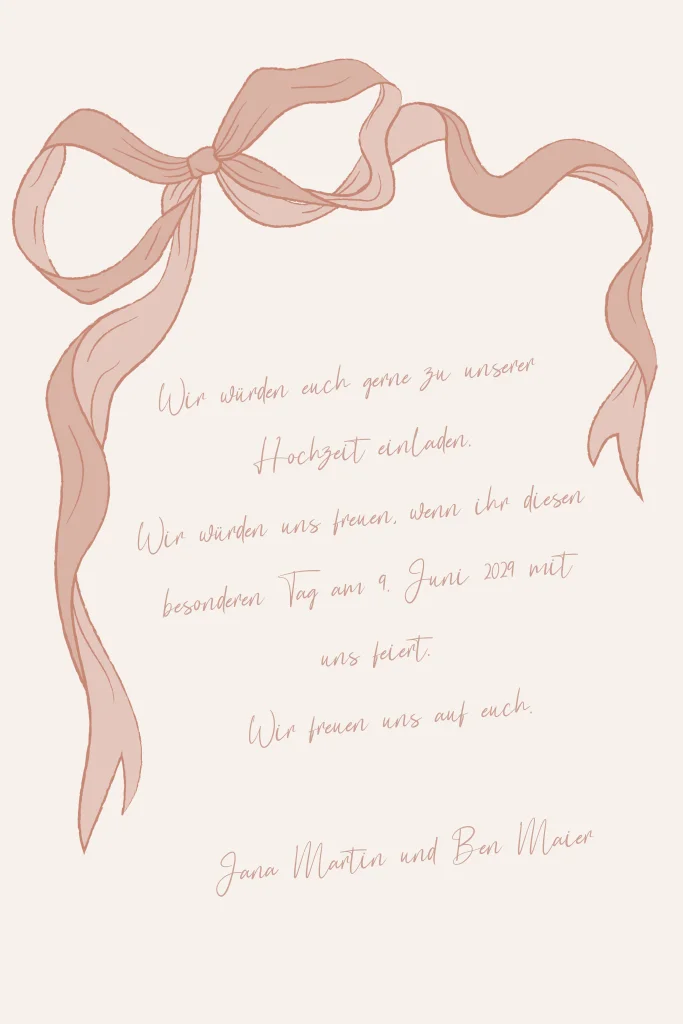 Wir würden euch gerne zu unserer
Hochzeit einladen.
Wir würden uns freuen, wenn ihr diesen
besonderen Tag am 9. Juni 2029 mit
uns feiert.
Wir freuen uns auf euch.
Jana Martin und Ben Maier